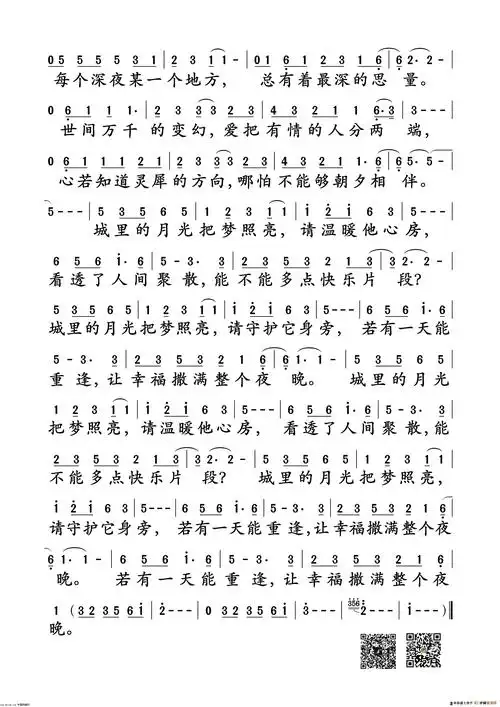 0 5 5 5 5 3 1 | 2 3 1 1 - | 0 1 6 1 2 3 1 6 | 6 2· 2 - |
每个深夜某一个地方， 总有着最深的思 量。
0 6 1 1 1· | 2 3 3 2 3 | 4 3 2 1 1 2 6·3 | 3 - - - |
世间万千 的变幻，爱把有情的人分两 端，
0 6 1 1 2 1 | 2 3 3 2 3 | 4 3 2 1 1· 6 | 6 5· 5 - |
心若知道灵犀的方向，哪怕不能够朝夕相 伴。
5 - - - | 5 3 5 6 5 | 1 2 3 1 1 | i 2 i 6 3 |
城里的月光把梦照亮， 请温暖他心房，
6 5 6 i· 6 | 5 - 3· 3 | 2 3 5 3 2 1 3 | 3 2· 2 - |
看透了人间聚散，能不能多点快乐片 段？
5 3 5 6 5 | 1 2 3 1 1 | i 2 i 6 3 | 6 5 6 i· 6 |
城里的月光把梦照亮，请守护它身旁， 若有一天能
5 - 3· 3 | 2 3 5 3 2 1 6 | 6 i· i - | 5 3 5 6 5 |
重 逢，让幸福撒满整个夜 晚。 城里的月光
1 2 3 1 1 | i 2 i 6 3 | 6 5 6 i· 6 | 5 - 3· 3 |
把梦照亮，请温暖他心房， 看透了人间聚散，能
2 3 5 3 2 1 3 | 3 2· 2 - | 5 3 5 6 5 | 1 2 3 1 1 |
不能多点快乐片 段？ 城里的月光把梦照亮，
i 2 i 6 3 | 5 - - - | 6 5 6 i· 6 | 5 - 3· 3 | 2 3 5 3 2 1 6 |
请守护它身旁， 若有一天能重逢，让幸福撒满整个夜
6 1· 1 - | 6 5 6 i· 6 | 5 - 3· 3 | 2 3 5 3 2 1 6 |
晚。 若有一天能重 逢，让幸福撒满整个夜
1 (3 2 3 5 6 i | 2 - - - | 0 3 2 3 5 6 i | 3 - - - | 356 2 - - - | i - - -)
晚。